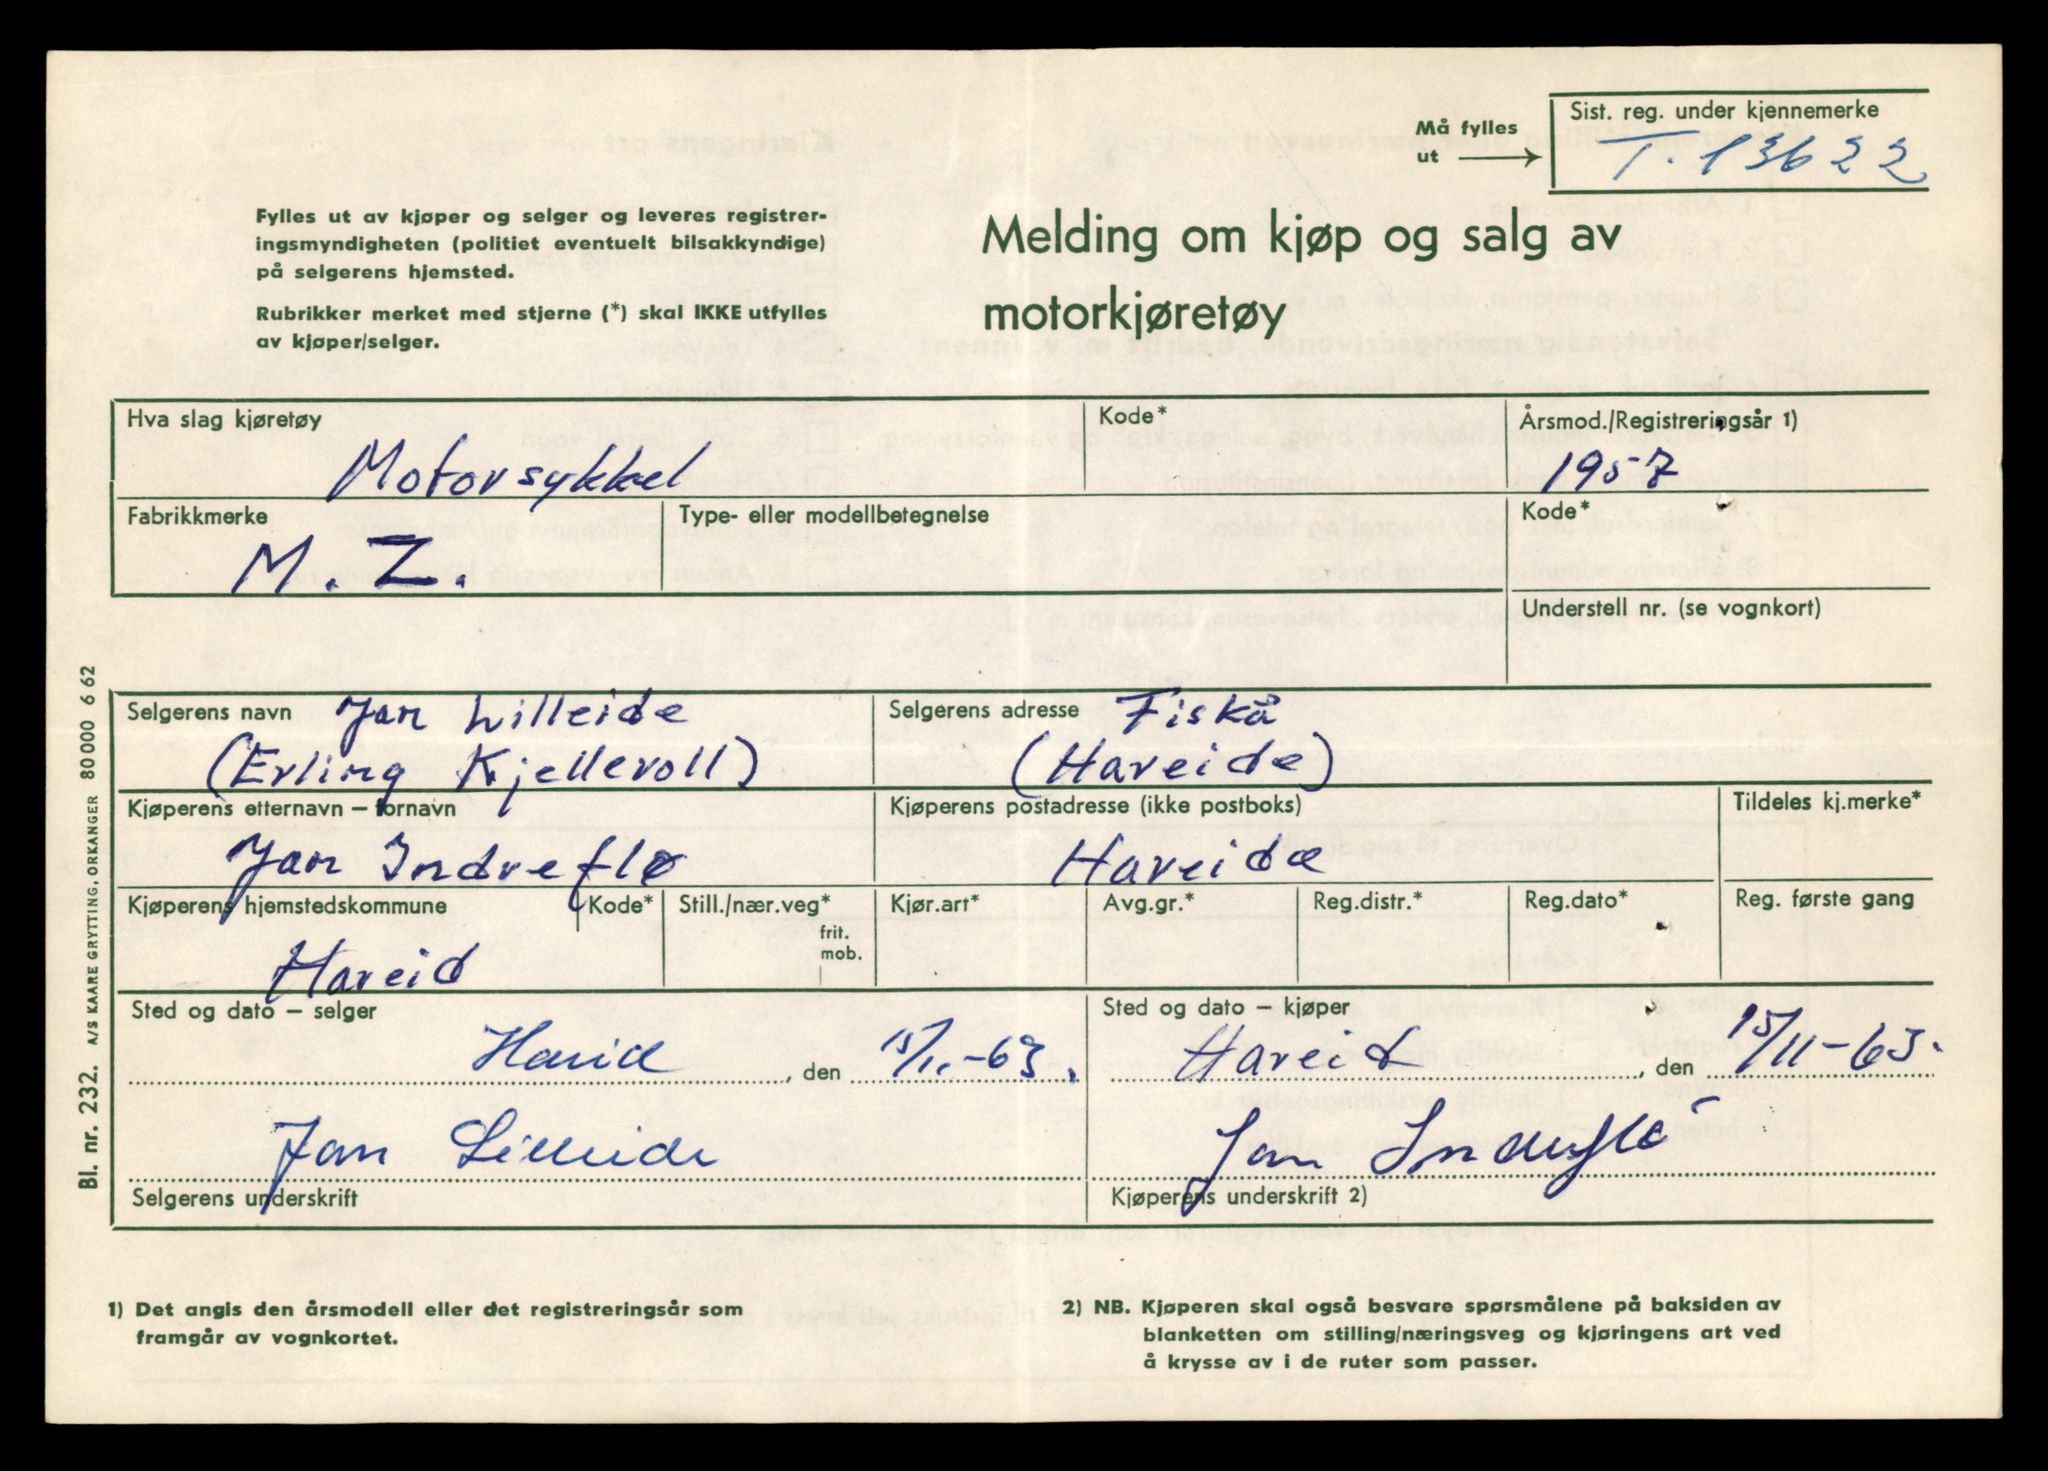 Må fylles ut
Sist. reg. under kjennemerke
T. 13622
Fylles ut av kjøper og selger og leveres registrer-
ingsmyndigheten (politiet eventuelt bilsakkyndige)
på selgerens hjemsted.
Rubrikker merket med stjerne (*) skal IKKE utfylles
av kjøper/selger.
Melding om kjøp og salg av
motorkjøretøy
Hva slag kjøretøy
Motorsykkel
Kode*
Årsmod./Registreringsår 1)
1957
Fabrikkmerke
M. Z.
Type- eller modellbetegnelse
Kode*
Understell nr. (se vognkort)
Selgerens navn Jan Lilleide
(Erling Kjellevoll)
Selgerens adresse Fiskå
(Hareide)
Kjøperens etternavn – fornavn
Jan Indreflø
Kjøperens postadresse (ikke postboks)
Hareide
Tildeles kj.merke*
Kjøperens hjemstedskommune
Hareid
Kode*
Still./nær.veg*
frit.
mob.
Kjør.art*
Avg.gr.*
Reg.distr.*
Reg.dato*
Reg. første gang
Sted og dato – selger
Hareid, den 15/11.-63.
Sted og dato – kjøper
Hareid, den 15/11-63.
Jan Lilleide
Selgerens underskrift
Jan Indreflø
Kjøperens underskrift 2)
1) Det angis den årsmodell eller det registreringsår som
framgår av vognkortet.
2) NB. Kjøperen skal også besvare spørsmålene på baksiden av
blanketten om stilling/næringsveg og kjøringens art ved
å krysse av i de ruter som passer.
Bl. nr. 232. A/S KAARE GRYTTING, ORKANGER 80000 6 62